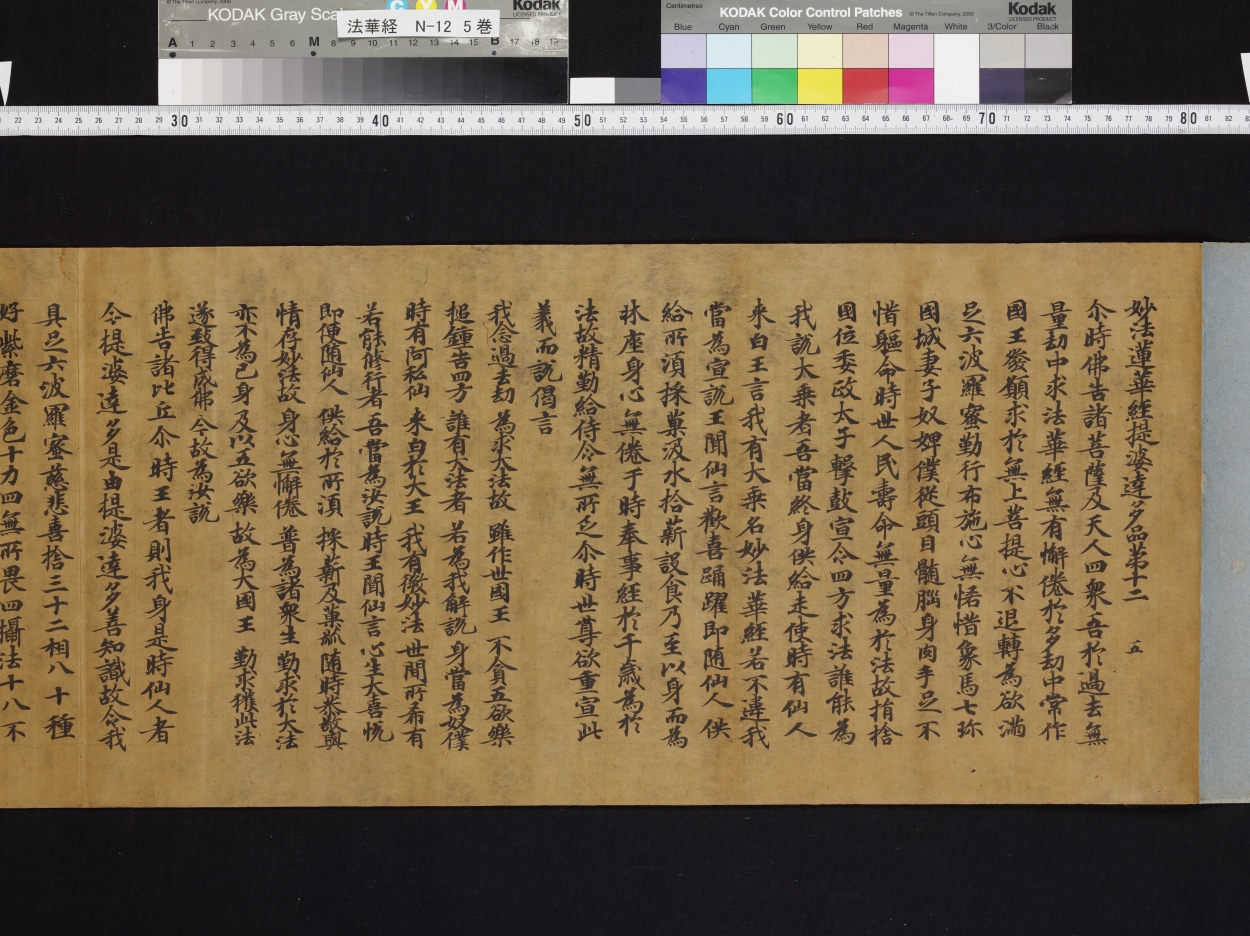 © The Tiffen Company, 2000
KODAK Gray Scale
C Y M
Kodak
LICENSED PRODUCT
法華経 N-12 5巻
A 1 2 3 4 5 6 M 8 9 10 11 12 13 14 15 B 17 18 19
Centimetres
KODAK Color Control Patches
© The Tiffen Company, 2000
Kodak
LICENSED PRODUCT
Blue Cyan Green Yellow Red Magenta White 3/Color Black
22 23 24 25 26 27 28 29 30 31 32 33 34 35 36 37 38 39 40 41 42 43 44 45 46 47 48 49 50 51 52 53 54 55 56 57 58 59 60 61 62 63 64 65 66 67 68 69 70 71 72 73 74 75 76 77 78 79 80 81 82
妙法蓮華經提婆達多品第十二 五
尒時佛告諸菩薩及天人四衆吾於過去無
量劫中求法華經無有懈倦於多劫中常作
國王發願求於無上菩提心不退轉為欲滿
足六波羅蜜勤行布施心無悋惜象馬七珎
國城妻子奴婢僕從頭目髓腦身肉手足不
惜軀命時世人民壽命無量為於法故捐捨
國位委政太子擊鼓宣令四方求法誰能為
我說大乘者吾當終身供給走使時有仙人
来白王言我有大乘名妙法華經若不違我
當為宣說王聞仙言歡喜踊躍即随仙人供
給所須採菓汲水拾薪設食乃至以身而為
牀座身心無倦于時奉事經於千歲為於
法故精勤給侍令無所乏尒時世尊欲重宣此
義而說偈言
我念過去劫 為求大法故 雖作世國王 不貪五欲樂
搥鍾告四方 誰有大法者 若為我解說 身當為奴僕
時有阿私仙 来白於大王 我有微妙法 世間所希有
若能修行者 吾當為汝說 時王聞仙言 心生大喜悅
即便随仙人 供給於所須 採薪及菓蓏 随時恭敬與
情存妙法故 身心無懈倦 普為諸衆生 勤求於大法
亦不為己身 及以五欲樂 故為大國王 勤求獲此法
遂致得成佛 今故為汝說
佛告諸比丘尒時王者則我身是時仙人者
今提婆達多是由提婆達多善知識故令我
具足六波羅蜜慈悲喜捨三十二相八十種
好紫磨金色十力四無所畏四攝法十八不